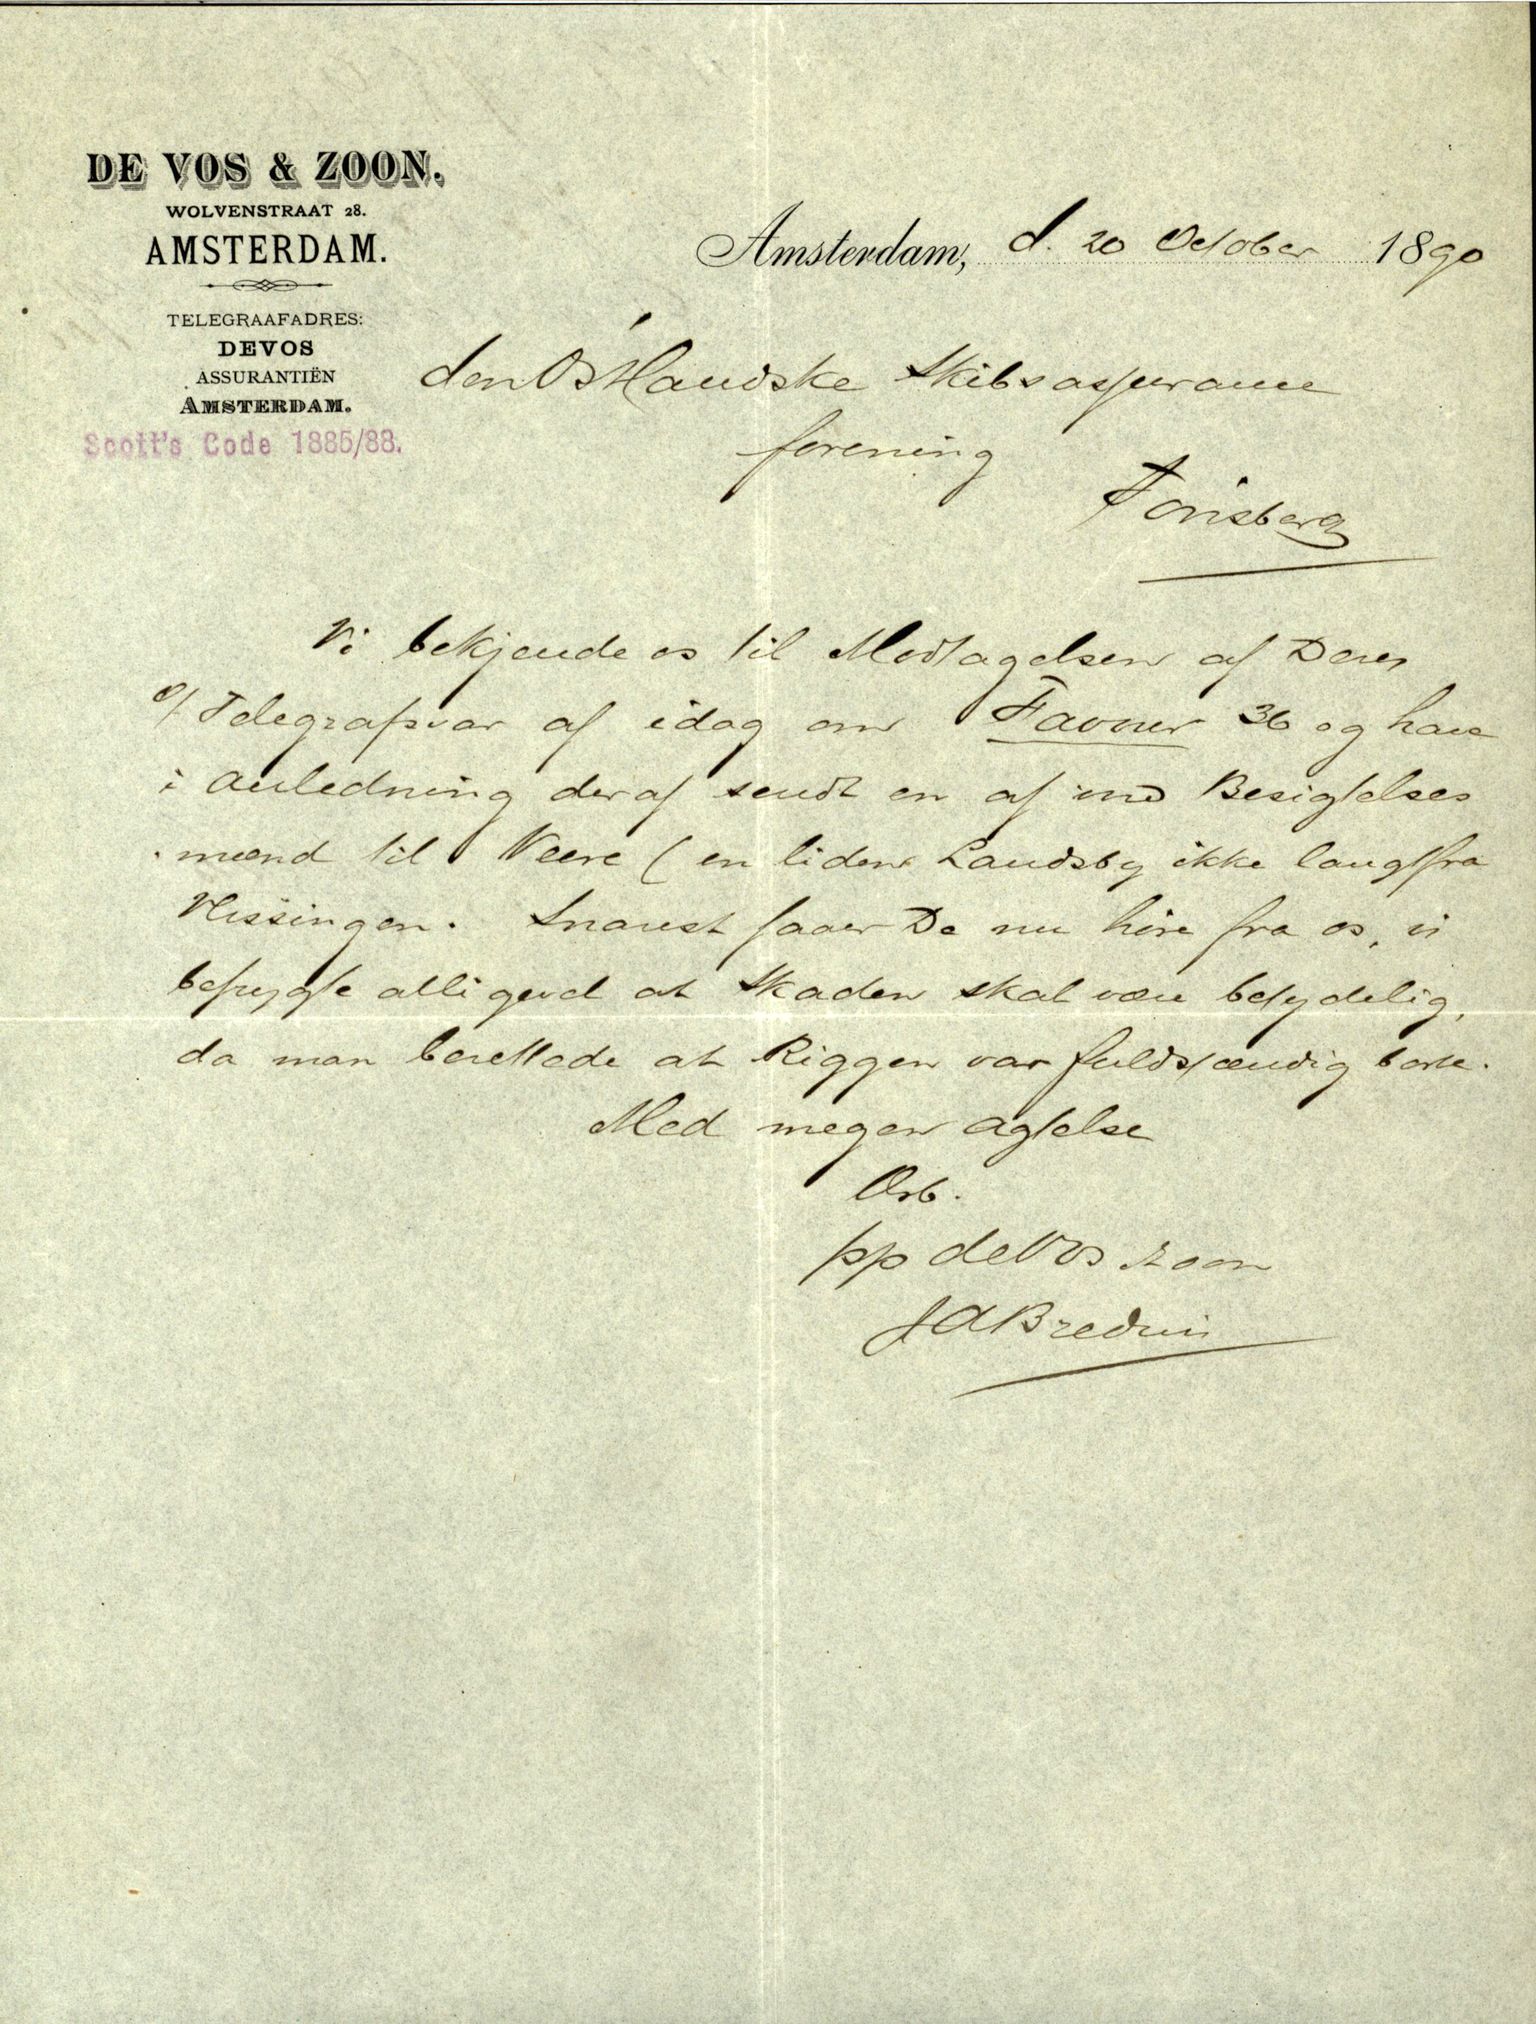 DE VOS & ZOON.
WOLVENSTRAAT 28.
AMSTERDAM.
TELEGRAAFADRES:
DEVOS
ASSURANTIËN
AMSTERDAM.
Scott's Code 1885/88.
Amsterdam, d. 20 October 1890
den Ostlandske Skibsassurance
forening
Tönsberg
Vi bekjende os til Modtagelsen af Deres
Telegrafsvar af idag om Favner 36 og have
i Anledning deraf sendt en af Besigtelses
mænd til Veere (en liden Landsby ikke langt fra
Vlissingen. Snarest faaer De nu höre fra os, vi
befrygte alligevel at Skaden skal være betydelig,
da man berettede at Riggen var fuldstændig borte.
Med megen Agtelse
Ærb.
pp de Vos & Zoon